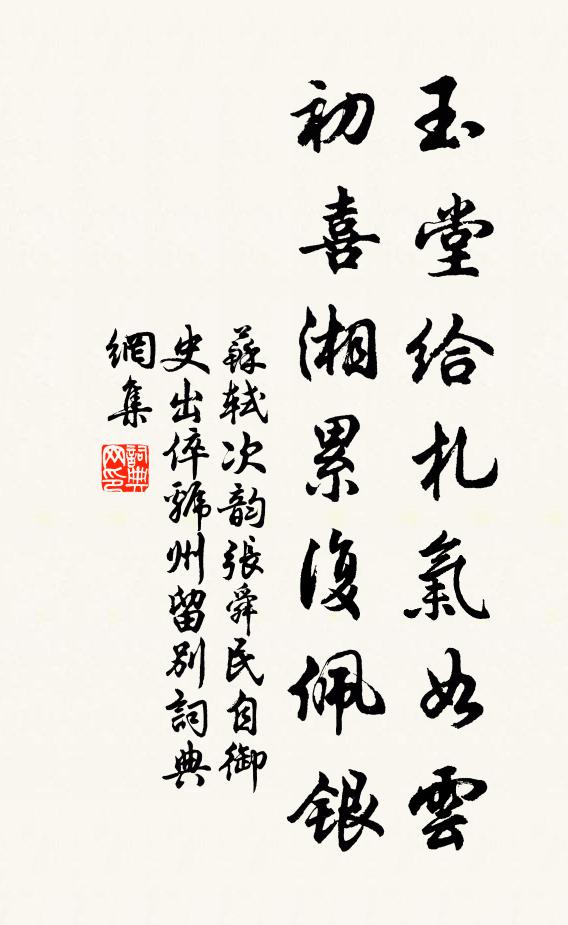 玉堂給札氣如雲
初喜湘累復佩銀
蘇軾次韵張舜民自御
史出倅虢州留別詞典
網集
詞典网印